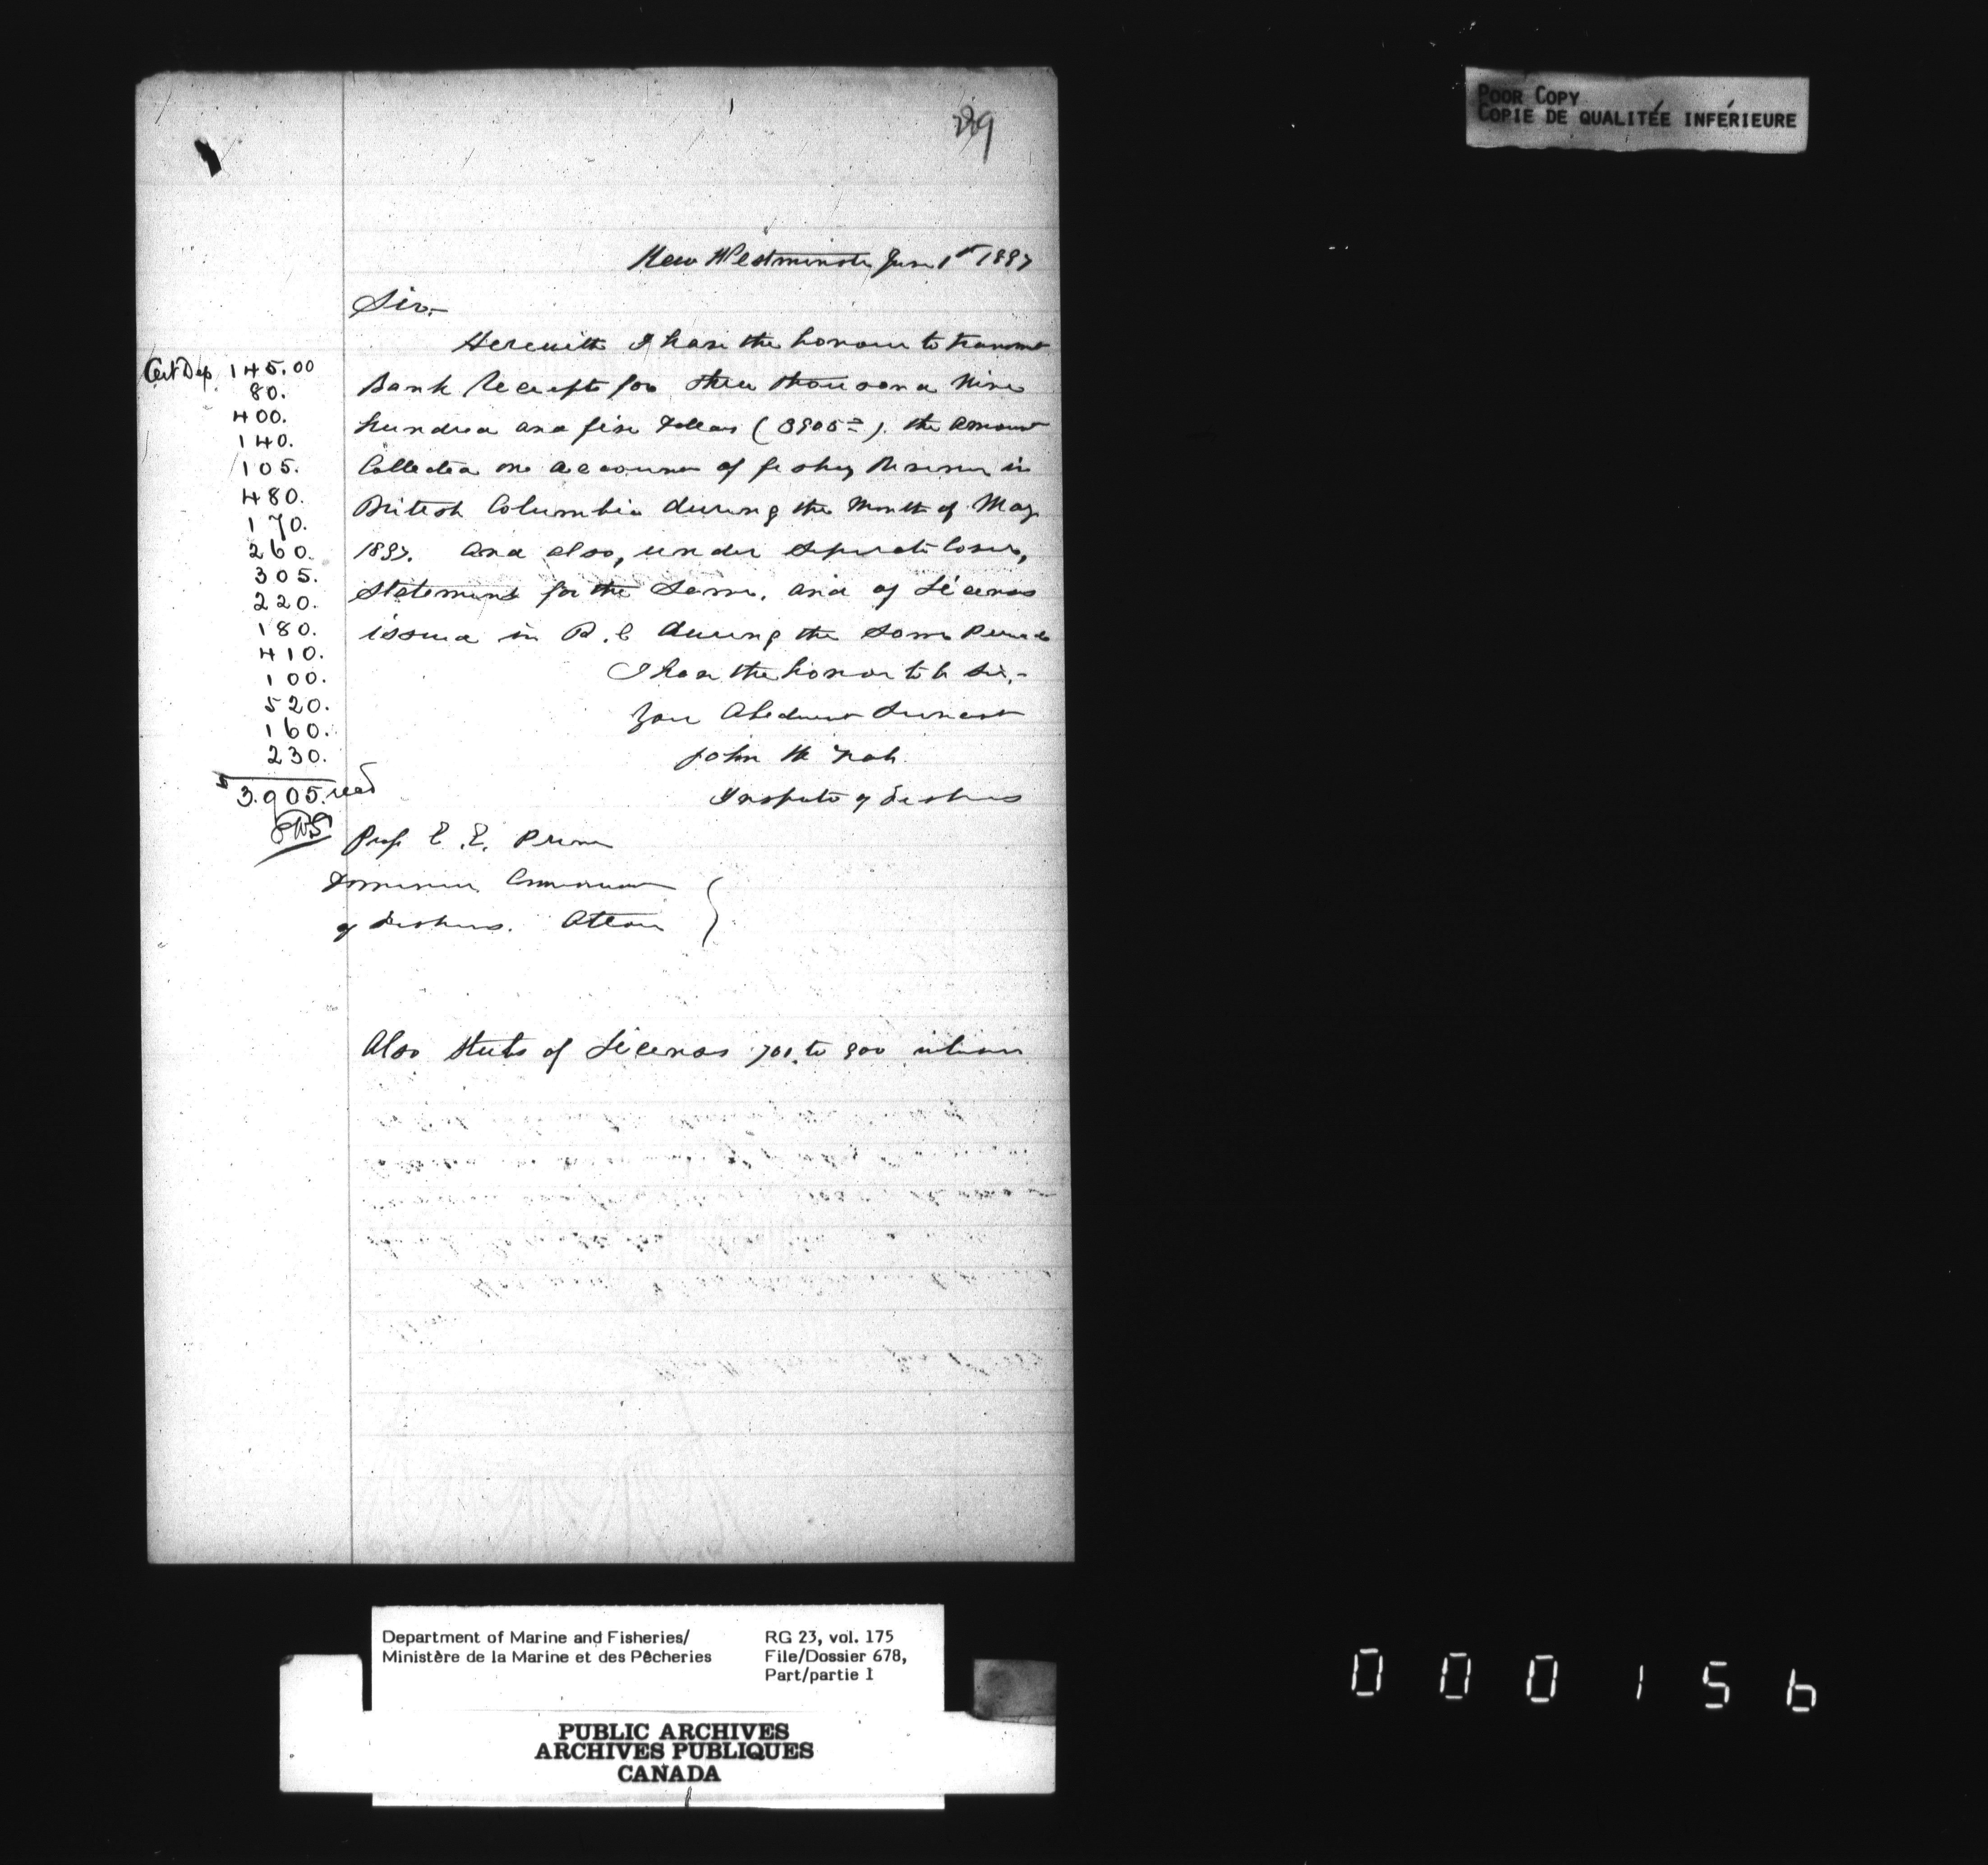 POOR COPY
COPIE DE QUALITÉE INFÉRIEURE
New Westminster June 1st 1897
Sir,-
Herewith I have the honour to transmit
Bank Receipts for three thousand Nine
hundred and five Dollars (3905=). the amount
Collected on account of fishery Revenue in
British Columbia during the Month of May
1897. and also, under separate Cover,
Statement for the Same, and of Licenses
issued in B.C during the Same Period
I have the honor to be Sir,-
Your Obedient Servant
John
Inspector of Fisheries
Prof E. E. Prince
Dominion Commissioner
of Fisheries. Ottawa
Cert Dep. 145.00
80.
400.
140.
105.
480.
170.
260.
305.
220.
180.
410.
100.
520.
160.
230.
$3.905. recd
Also Stubs of Licenses 701. to 900
Department of Marine and Fisheries/
Ministère de la Marine et des Pêcheries
RG 23, vol. 175
File/Dossier 678,
Part/partie 1
PUBLIC ARCHIVES
ARCHIVES PUBLIQUES
CANADA
000156